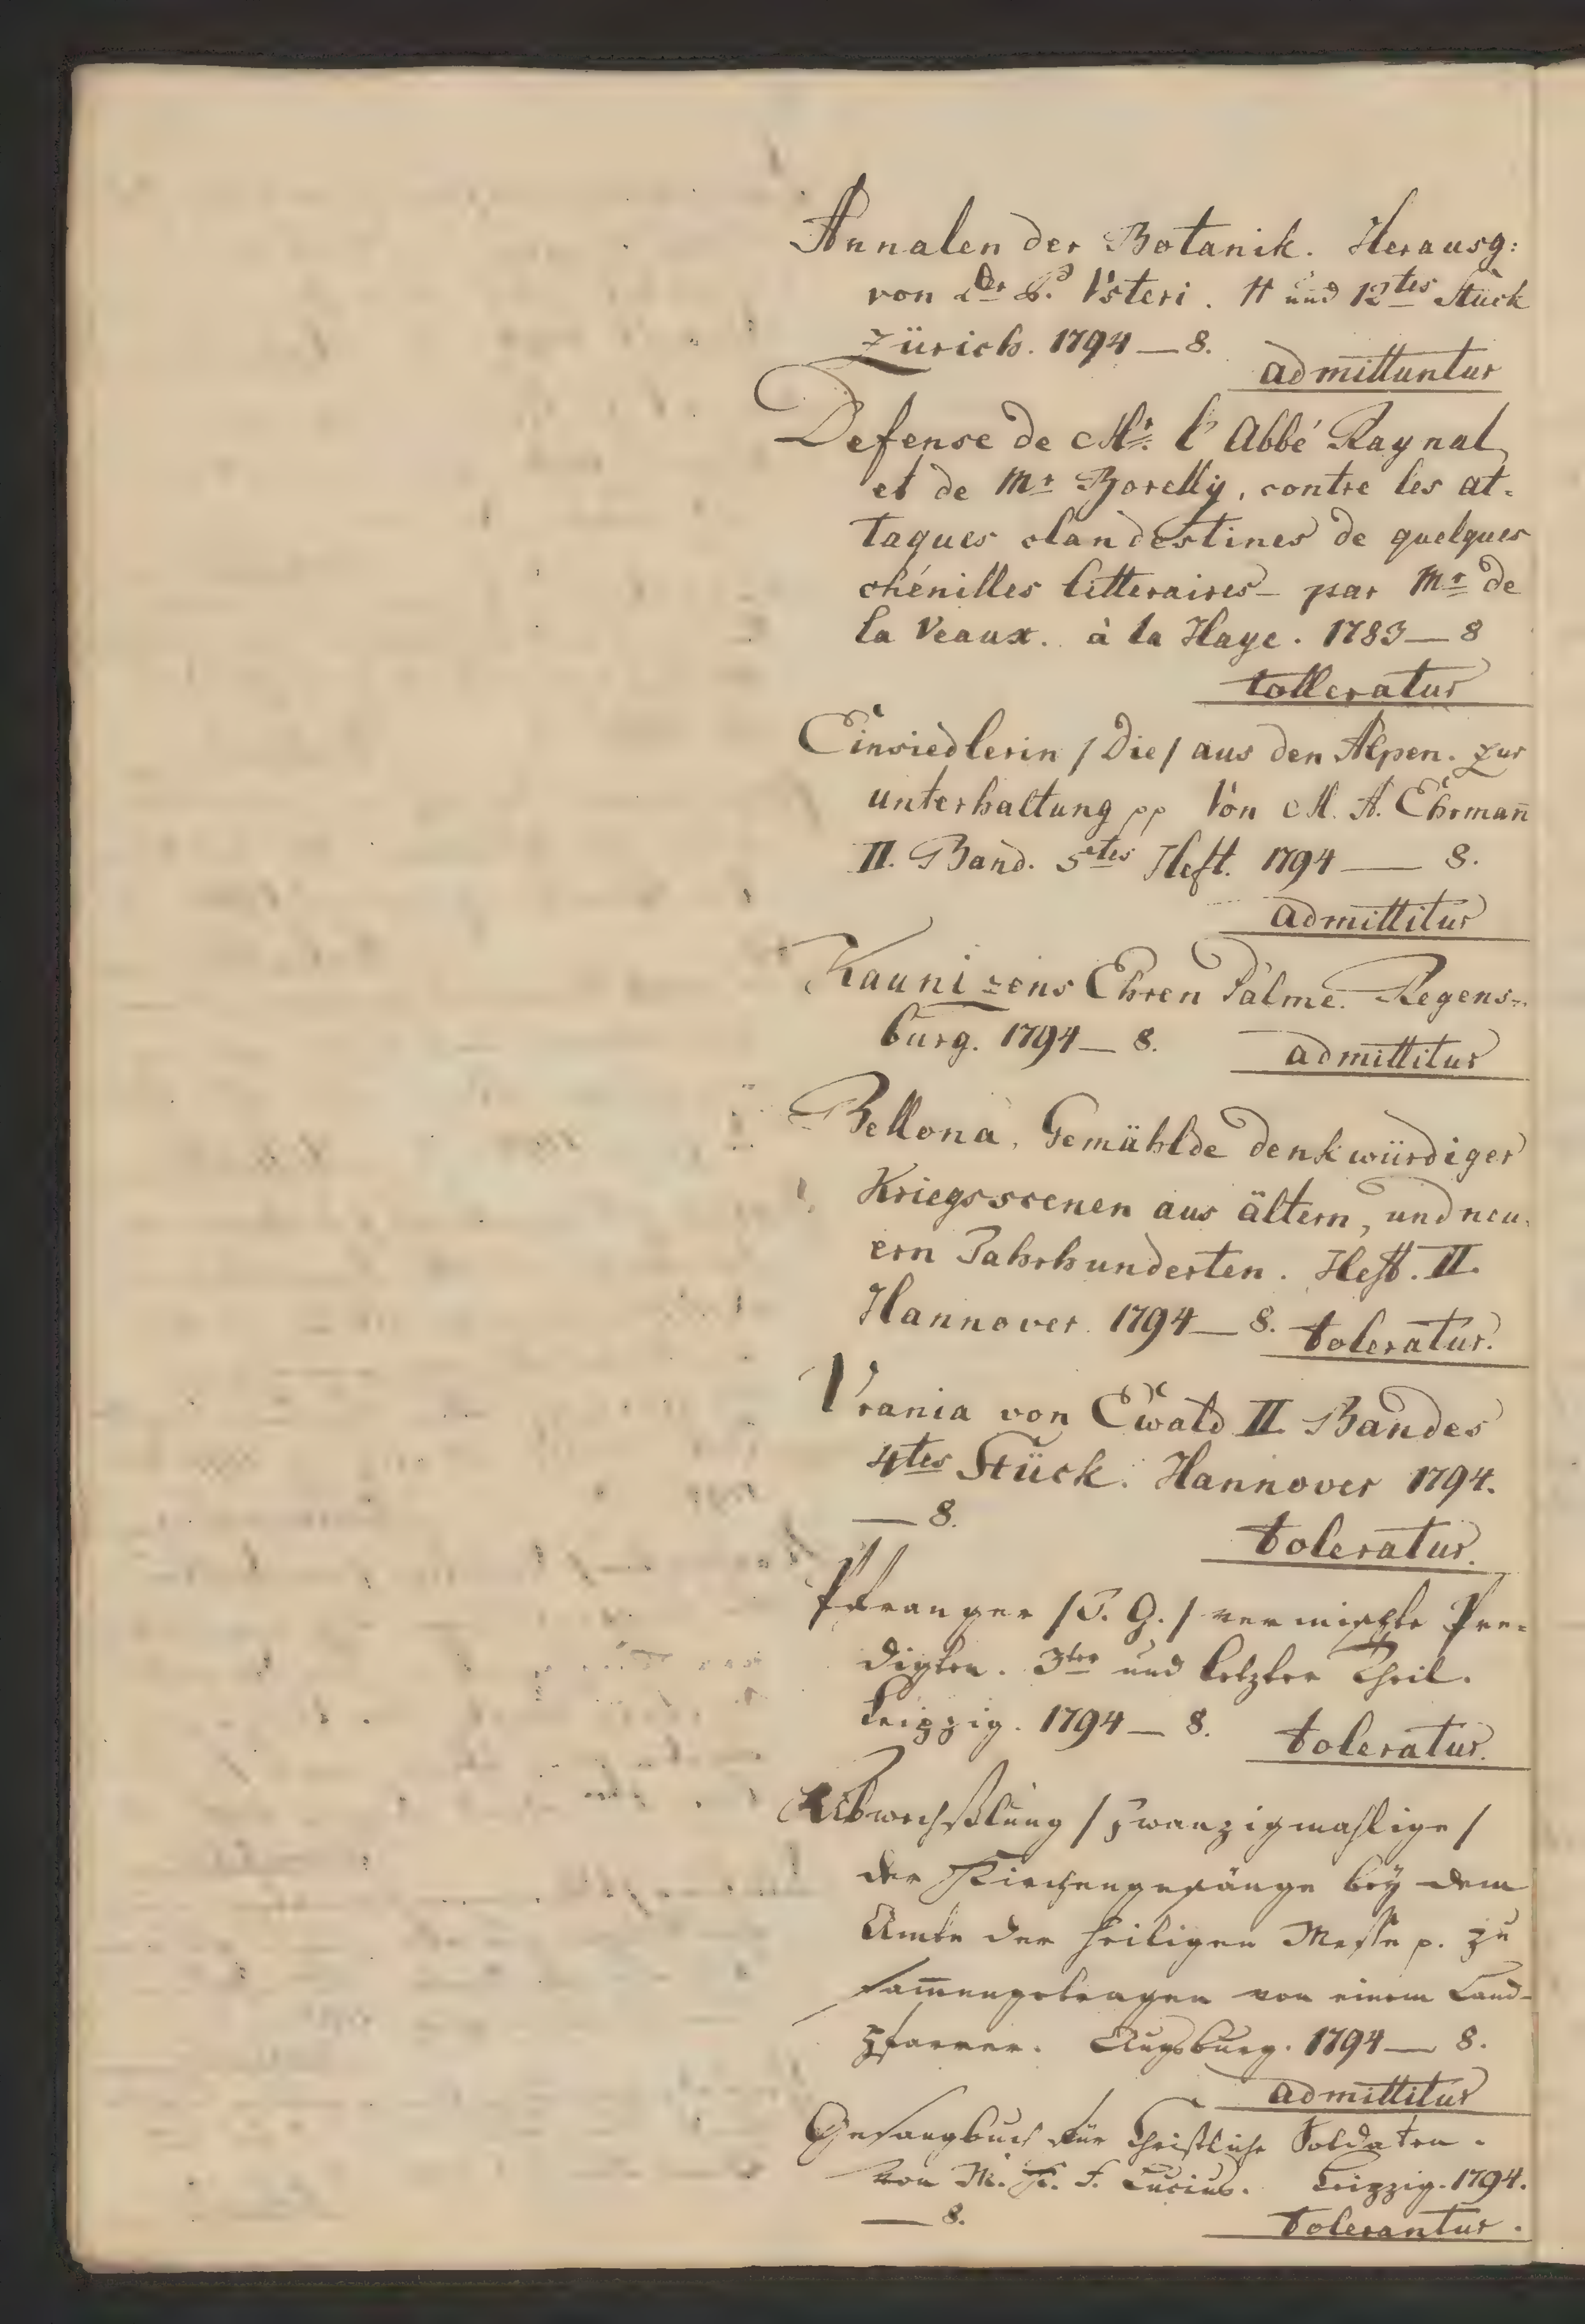 Annalen der Botanik. Herausg:
von Dr P. Usteri. 11 und 12tes Stück
Zürich. 1794 — 8.
admittuntur
Defense de Mr. l'Abbé Raynal
et de Mr Borelly, contre les at-
taques clandestines de quelques
chénilles litteraires — par Mr de
la Veaux. à la Haye. 1783 — 8
tolleratur
Einsiedlerin /Die/ aus den Alpen. Zur
unterhaltung pp Von M. A. Ehrman̄
II. Band. 5tes Heft. 1794 — 8.
admittitur
Kaunizens Ehren Palme. Regens-
burg. 1794 — 8. admittitur
Bellona, Gemählde denkwürdiger
Kriegsscenen aus ältern, und neu-
ern Jahrhunderten. Heft. II.
Hannover. 1794 — 8. toleratur.
Urania von Ewald II. Bandes
4tes Stück. Hannover 1794.
— 8.
toleratur.
Pfranger /J. G./ vermischte Pre-
digten. 3ter und letzter Theil.
Leipzig. 1794 — 8. toleratur.
Abwechßlung /zwanzigmahlige/
der Kirchengesänge bey dem
Amte der heiligen Messe p. zu
sam̄engetragen von einem Land-
pfarrer. Augsburg. 1794 — 8.
admittitur
Gesangbuch für Christliche Soldaten.
von M. K. F. Lucius. Leipzig. 1794.
— 8.
tolerantur.